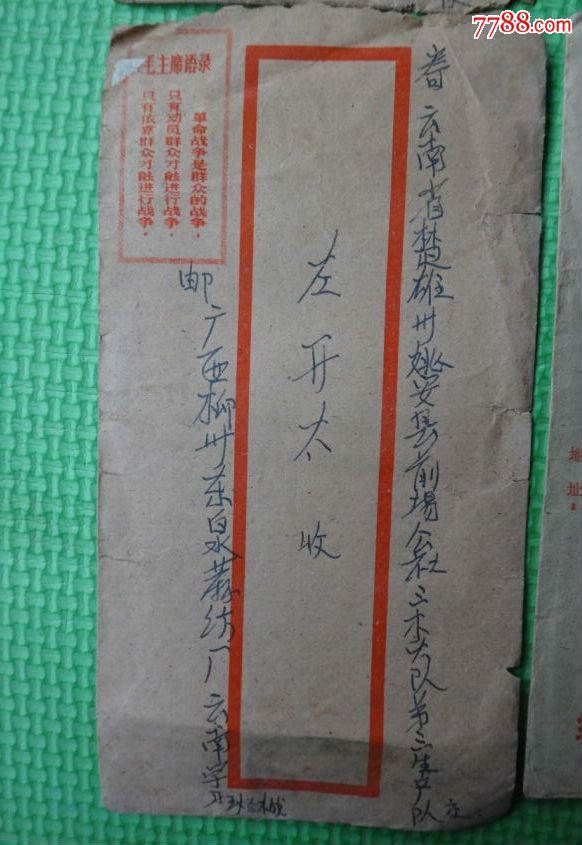 7788.com
寄云南省楚雄州姚安县前場公社三木大队第三生产队
左开太 收
毛主席语录
革命战争是群众的战争，
只有动员群众才能进行战争，
只有依靠群众才能进行战争。
邮广西柳州东泉蔴纺厂云南学
地址：